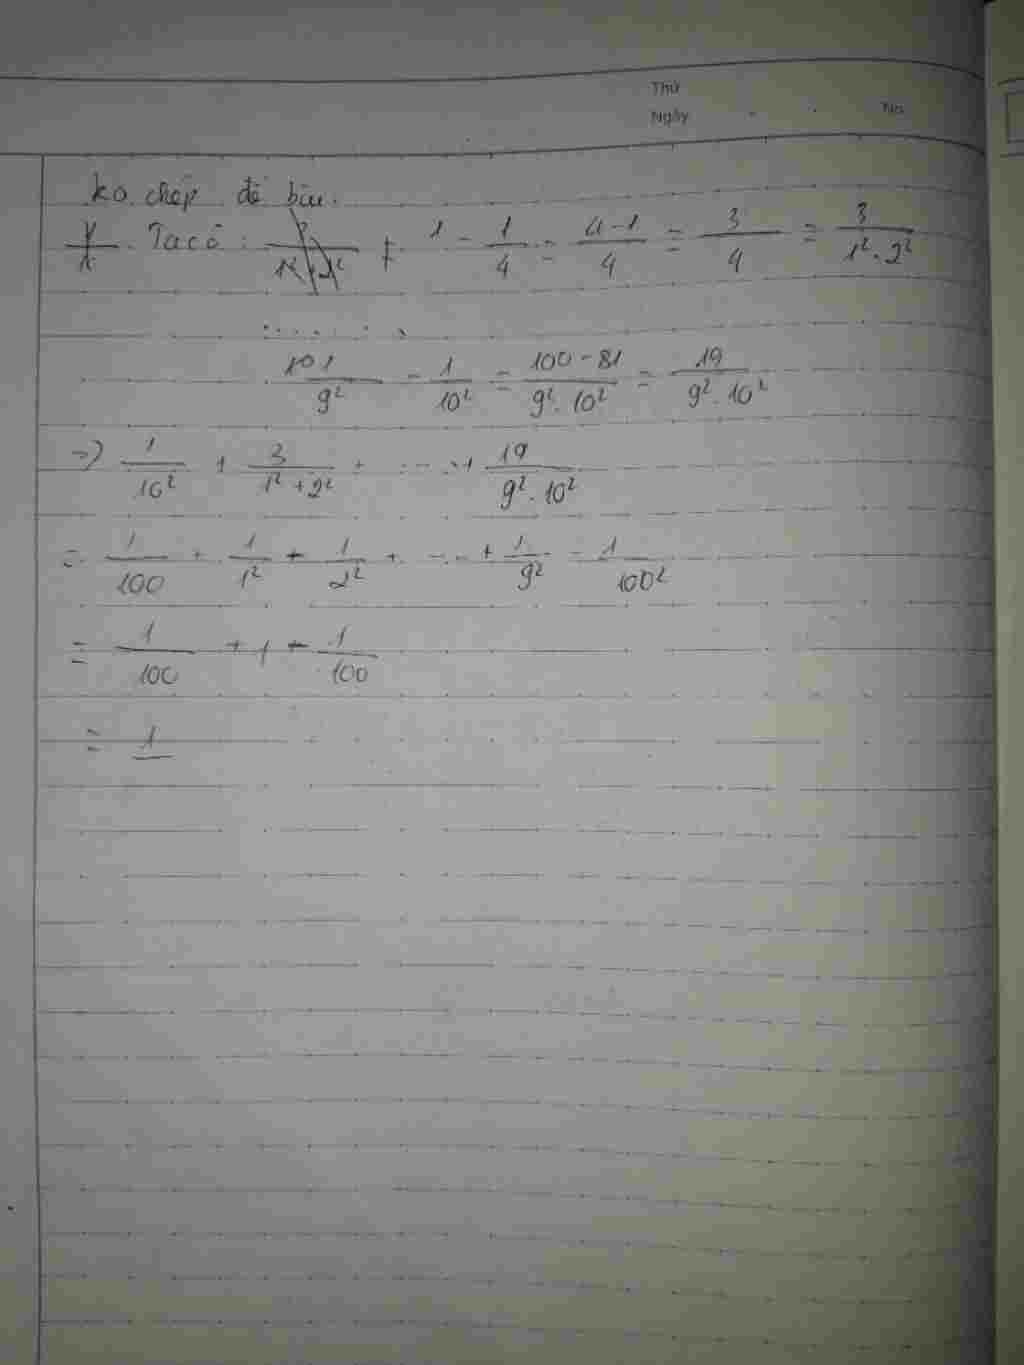 Thứ
Ngày No.
ko chép đề bài.
Ta có : 1 - 1/4 = 4-1/4 = 3/4 = 3/1².2²
.......
1/9² - 1/10² = 100-81/9².10² = 19/9².10²
=> 1/10² + 3/1²+2² + ..... + 19/9².10²
= 1/100 + 1/1² - 1/2² + .... + 1/9² - 1/100²
= 1/100 + 1 - 1/100
= 1